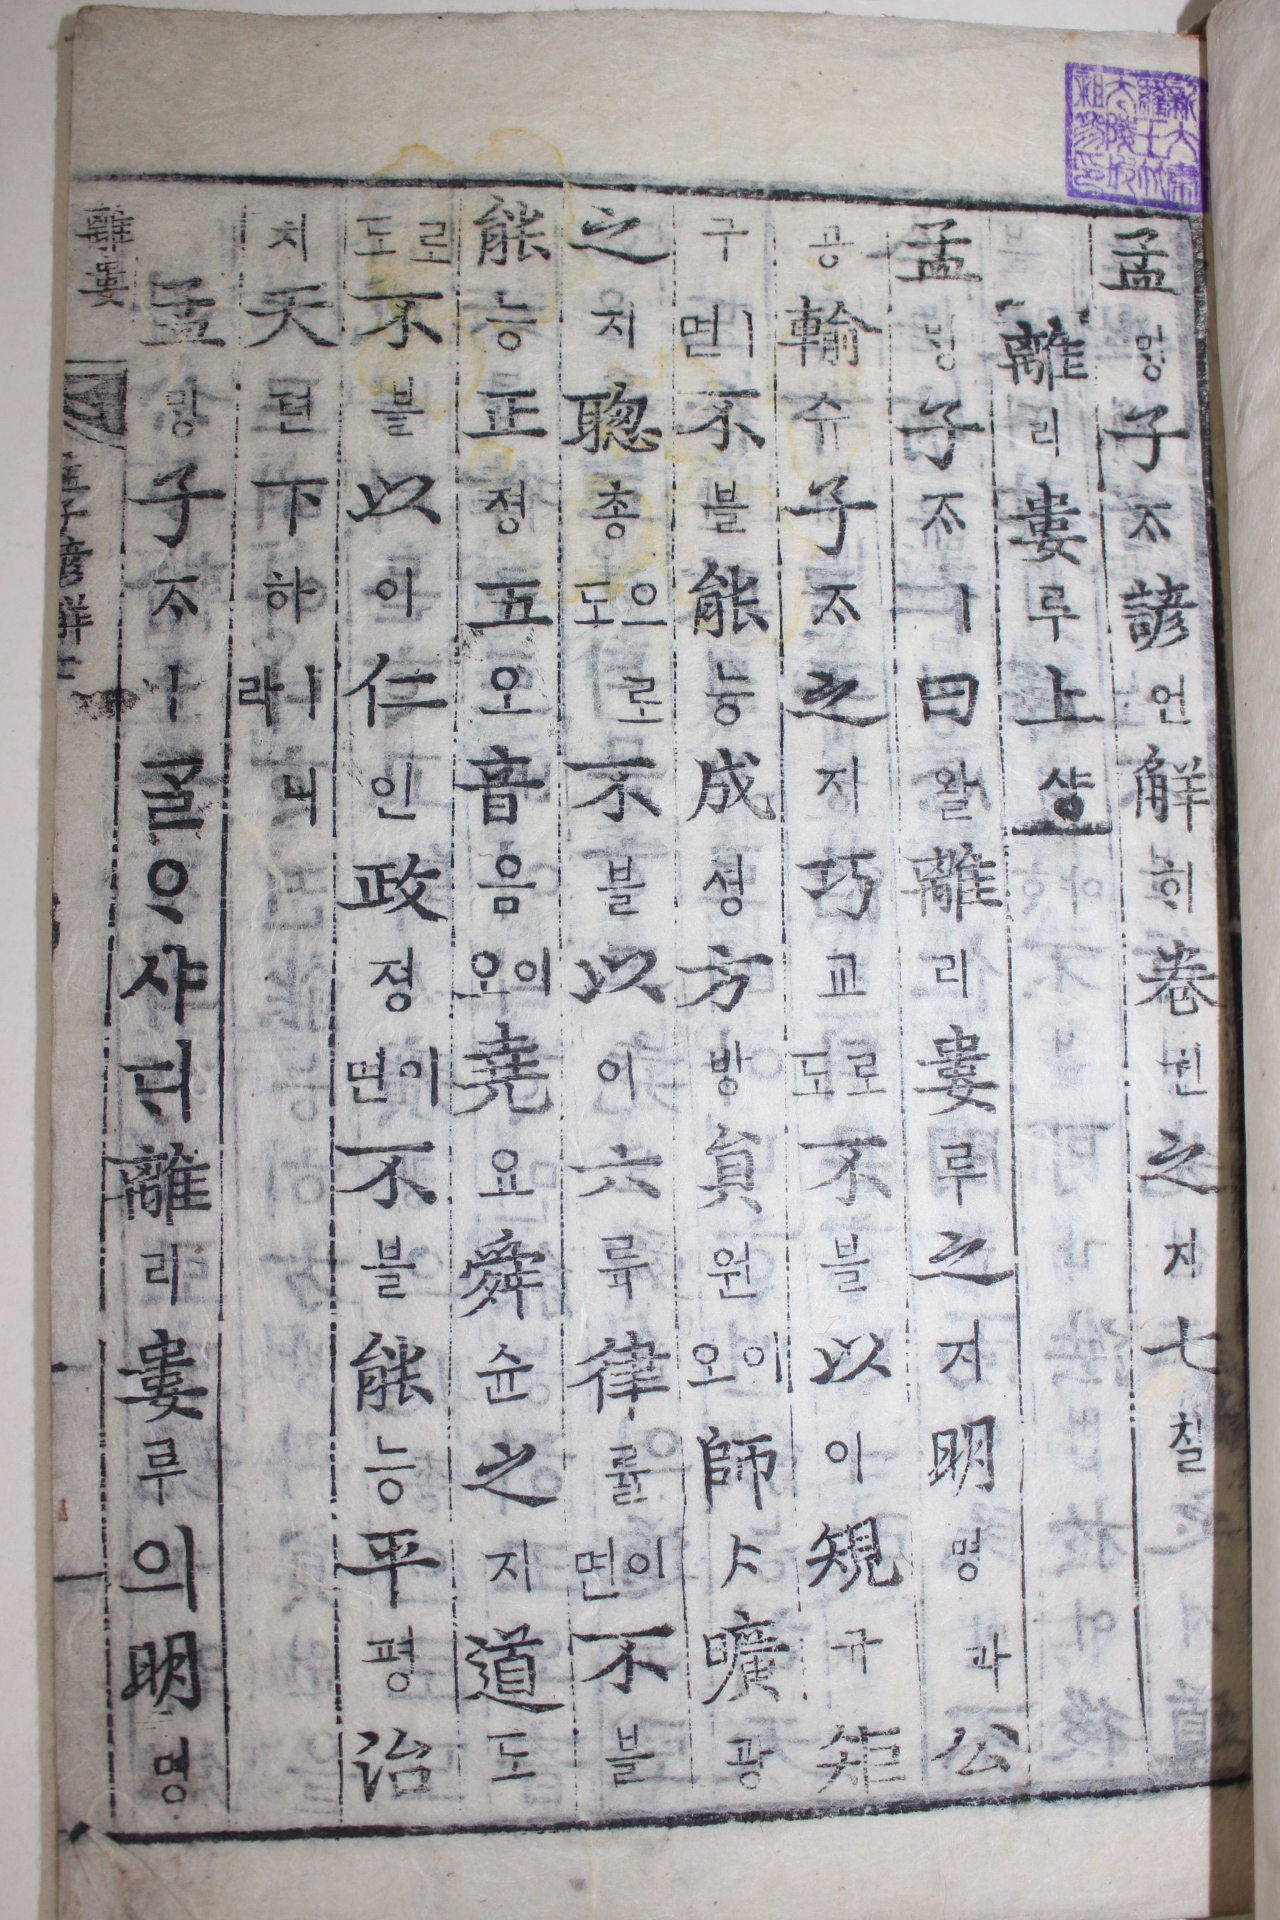 孟ᄆᆡᆼ子ᄌᆞ諺언解ᄒᆡ卷권之지七칠
離리婁루上샹
孟ᄆᆡᆼ子ᄌᆞㅣ曰왈離리婁루之지明명과公
공輸슈子ᄌᆞ之지巧교로도不블以이規규矩
구ㅣ면不블能능成셩方방員원이오師ᄉᆞ曠광
之지聰총으로도不블以이六륙律률이면不블
能능正졍五오音음이오堯요舜슌之지道도
로도不블以이仁인政졍이면不블能능平평治
치天텬下하ㅣ니라
孟ᄆᆡᆼ子ᄌᆞㅣᄀᆞᆯᄋᆞ샤ᄃᆡ離리婁루의明명
離婁
孟子諺解七